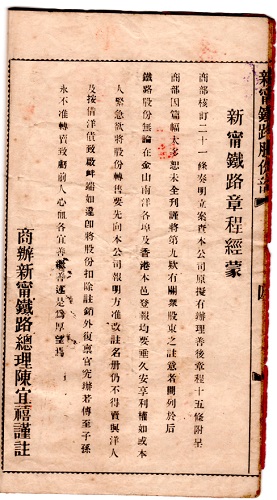 新甯鐵路股份部
新甯鐵路章程經蒙
商部核訂二十一條奏明立案查本公司原擬有辦理善後章程十五條附呈
商部因篇幅太多恕未全列謹將第九欵有關衆股東之註意者開列於後
鐵路股份無論在金山南洋各埠及香港本邑登報均要垂久安享利權如或本
人緊急欲將股份轉售要先向本公司報明方准改註名册仍不得賣與洋人
及按借洋債致啟衅端如違卽將股份扣除註銷外復禀官究辦若傳至子孫
永不准轉賣致虧前人心血各宜善繼善述是爲厚望焉
商辦新甯鐵路總理陳宜禧謹註